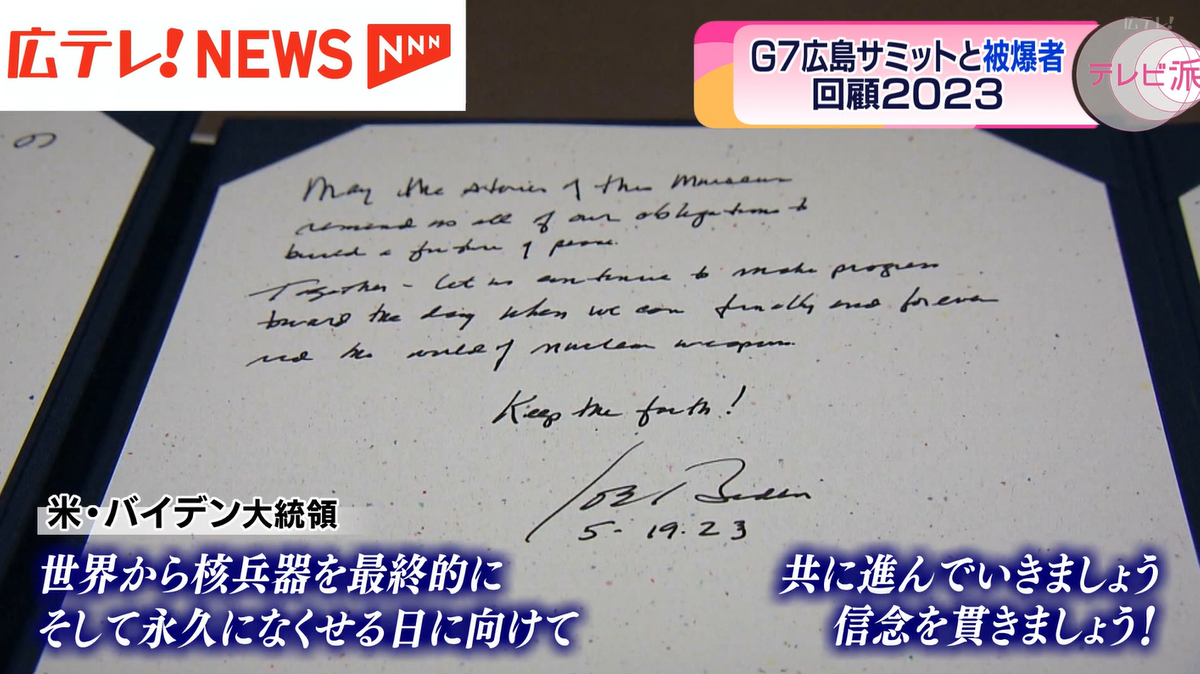 広テレ!NEWS NNN
広テレ!
G7広島サミットと被爆者
回顧2023
テレビ派
May the stories of this Museum
remind us all of our obligations to
build a future of peace.
Together - let us continue to make progress
toward the day when we can finally and forever
rid the world of nuclear weapons.
Keep the faith!
Joe Biden
5-19-23
米・バイデン大統領
世界から核兵器を最終的に
そして永久になくせる日に向けて
共に進んでいきましょう
信念を貫きましょう!